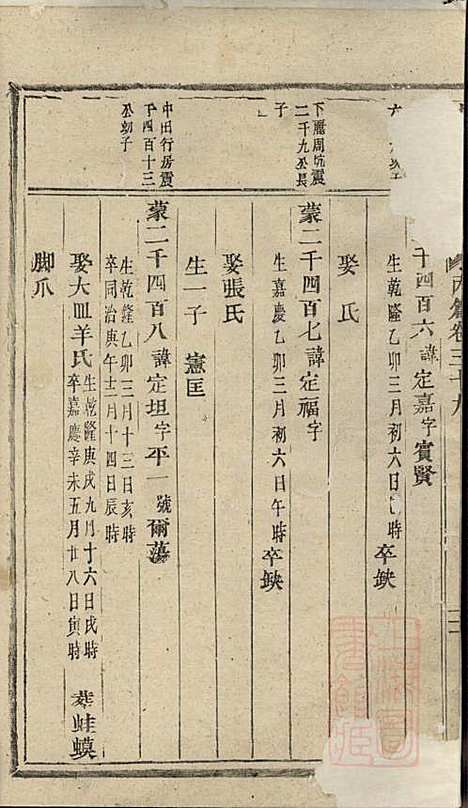 內篇卷三十九
千四百六諱定嘉字賓賢
生乾隆乙卯三月初六日 時 卒缺
娶 氏
下麗周坑震
二千九公長
子
蒙二千四百七諱定福字
生嘉慶乙卯三月初六日午時 卒缺
娶張氏
生一子 憲匡
中田行房震
千四百十三
公幼子
蒙二千四百八諱定坦字平一號爾蕩
生乾隆乙卯三月十三日亥時
卒同治庚午十二月十四日辰時
娶大皿羊氏
生乾隆庚戌九月十六日戌時
卒嘉慶辛未五月廿八日寅時
葬蛙蟆
脚爪